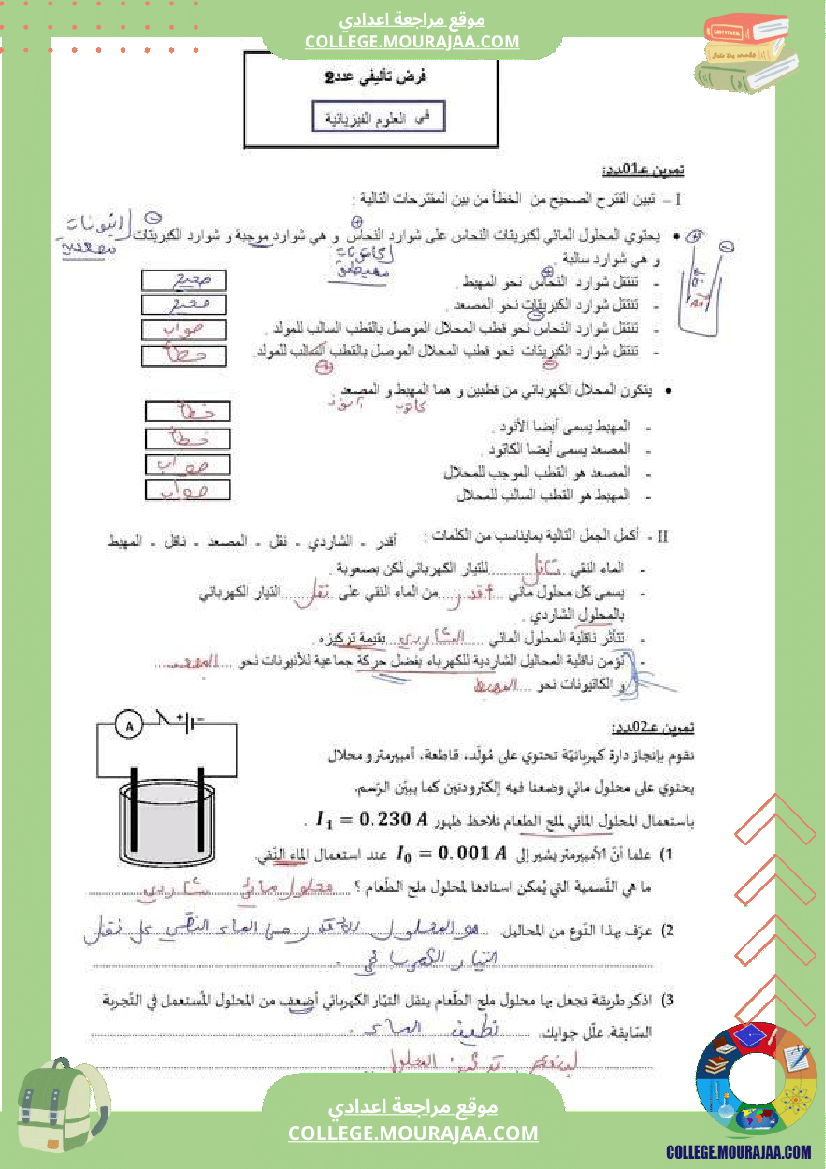 موقع مراجعة اعدادي
COLLEGE.MOURAJAA.COM
فرض تأليفي عدد2
في العلوم الفيزيائية
تمرين عـ01ـدد:
I – تبين المقترح الصحيح من الخطأ من بين المقترحات التالية :
• يحتوي المحلول المائي لكبريتات النحاس على شوارد النحاس و هي شوارد موجبة و شوارد الكبريتات
و هي شوارد سالبة .
- تنتقل شوارد النحاس نحو المهبط . صحيح
- تنتقل شوارد الكبريتات نحو المصعد . صحيح
- تنتقل شوارد النحاس نحو قطب المحلال الموصل بالقطب السالب للمولد . صواب
- تنتقل شوارد الكبريتات نحو قطب المحلال الموصل بالقطب السالب للمولد. خطأ
• يتكون المحلال الكهربائي من قطبين و هما المهبط و المصعد
كاتود آنود
- المهبط يسمى أيضا الأنود . خطأ
- المصعد يسمى أيضا الكاتود . خطأ
- المصعد هو القطب الموجب للمحلال صواب
- المهبط هو القطب السالب للمحلال صواب
II - أكمل الجمل التالية بمايناسب من الكلمات : أقدر - الشاردي - نقل - المصعد - ناقل - المهبط
- الماء النقي ناقل للتيار الكهربائي لكن بصعوبة .
- يسمى كل محلول مائي أقدر من الماء النقي على نقل التيار الكهربائي
بالمحلول الشاردي .
- تتأثر ناقلية المحلول المائي الشاردي بقيمة تركيزه .
- تؤمن ناقلية المحاليل الشاردية للكهرباء بفضل حركة جماعية للأنيونات نحو المصعد
و الكاتيونات نحو المهبط
تمرين عـ02ـدد:
نقوم بإنجاز دارة كهربائيّة تحتوي على مُولّد، قاطعة، أمبيرمتر و محلال
يحتوي على محلول مائي وضعنا فيه إلكترودتين كما يبيّن الرّسم.
باستعمال المحلول المائي لملح الطعام نلاحظ ظهور I₁ = 0.230 A .
A
1) علما أنّ الأمبيرمتر يشير إلى I₀ = 0.001 A عند استعمال الماء النّقي.
ما هي التّسمية التي يُمكن اسنادها لمحلول ملح الطّعام ؟ محلول مائي شاردي
2) عرّف بهذا النّوع من المحاليل. هو المحلول الأقدر من الماء النقي على نقل
التيار الكهربائي .
3) اذكر طريقة تجعل بها محلول ملح الطّعام ينقل التيّار الكهربائي أضعف من المحلول المُستعمل في التّجربة
السّابقة. علّل جوابك.
موقع مراجعة اعدادي
COLLEGE.MOURAJAA.COM
COLLEGE.MOURAJAA.COM